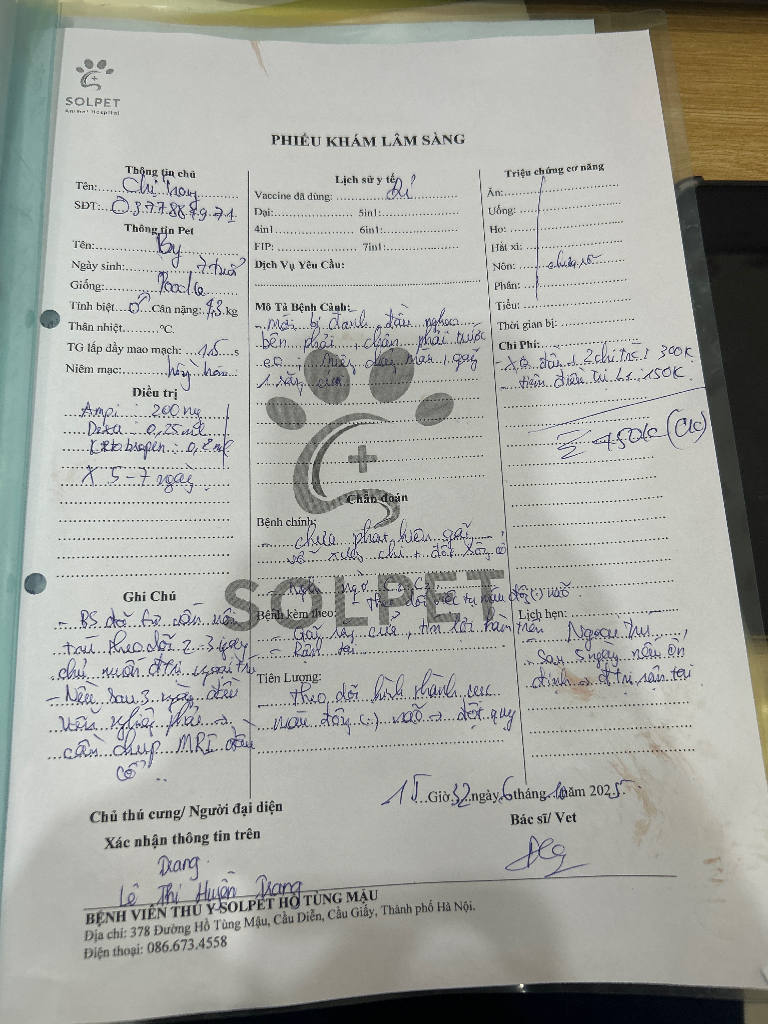 SOLPET
Animal Hospital
PHIẾU KHÁM LÂM SÀNG
Thông tin chủ
Tên: Chị Trang
SĐT: 0377887971
Thông tin Pet
Tên: By
Ngày sinh: 7 tuổi
Giống: Poodle
Tính biệt: ♂ Cân nặng: 7,3 kg
Thân nhiệt ℃
TG lấp đầy mao mạch: 1,5 s
Niêm mạc: hồng
Điều trị
Ampi: 200 mg
Dexa: 0,25 ml
Ketoprofen: 0,2 ml
x 5-7 ngày
Ghi Chú
- BS
theo dõi 2-3 ngày
chủ muốn đtrị ngoại trú
- Nếu sau 3 ngày đầu
vẫn nghiêng phải →
cần chụp MRI đầu
cổ
Lịch sử y tế
Vaccine đã dùng:
Dại: 5in1:
4in1 6in1:
FIP: 7in1:
Dịch Vụ Yêu Cầu:
Mô Tả Bệnh Cảnh:
- mới bị đánh, đầu nghẹo
bên phải, chân phải trước
chảy máu, gãy
1 răng cửa
Chẩn đoán
Bệnh chính:
- chưa phát hiện gãy
xương chi + đốt xống cổ
Bệnh kèm theo: - theo dõi tụ máu não
- Gãy răng cửa, hàm trên
- Rận tai
Tiên Lượng:
- theo dõi hình thành cục
máu đông (.) não → đột quỵ
Triệu chứng cơ năng
Ăn:
Uống:
Ho:
Hắt xì:
Nôn: chưa rõ
Phân:
Tiểu:
Thời gian bị:
Chi Phí:
- XQ đầu + 2 chi trc: 300K
- tiền điều trị L1: 150K
Σ 450K (CK)
Lịch hẹn:
- Ngoại trú
- Sau 5 ngày nếu ổn
định → đtrị rận tai
15 Giờ 32 ngày 6 tháng 10 năm 2025
Chủ thú cưng/ Người đại diện
Xác nhận thông tin trên
Bác sĩ/ Vet
Trang
Lê Thị Huyền Trang
BỆNH VIỆN THÚ Y-SOLPET HỒ TÙNG MẬU
Địa chỉ: 378 Đường Hồ Tùng Mậu, Cầu Diễn, Cầu Giấy, Thành phố Hà Nội.
Điện thoại: 086.673.4558
SOLPET